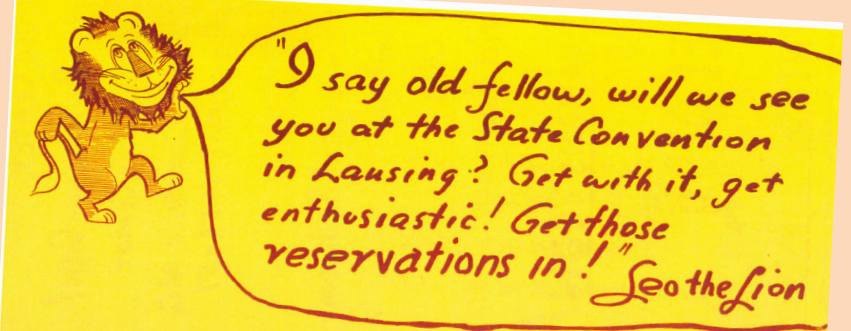 "I say old fellow, will we see
you at the State Convention
in Lansing? Get with it, get
enthusiastic! Get those
reservations in!" Leo the Lion